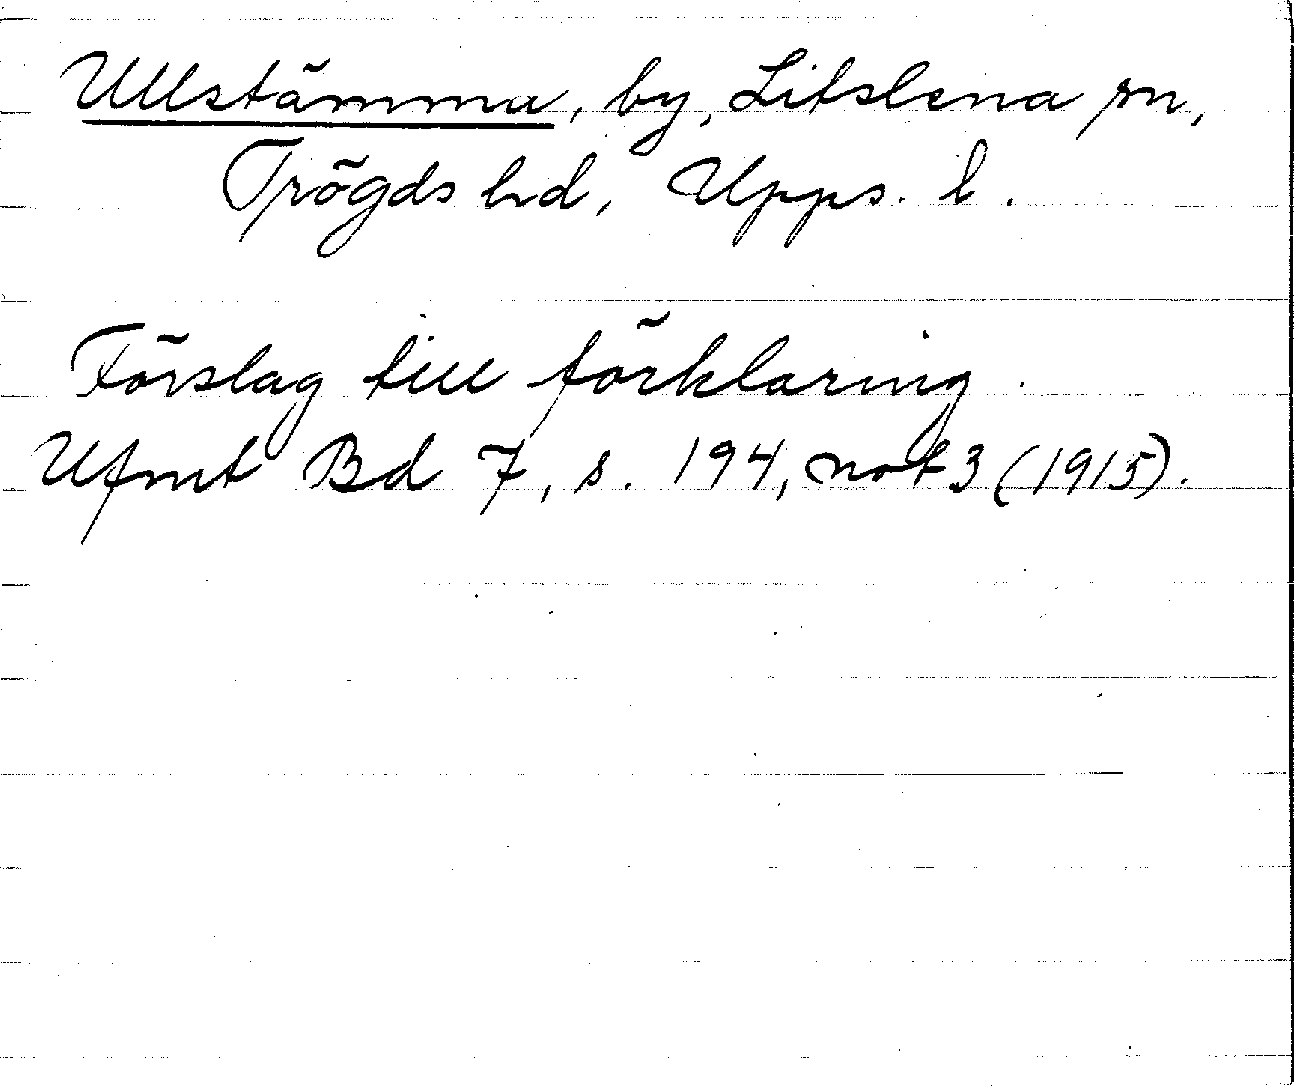 Ullstämma, by, Litslena sn,
Trögds hd, Upps. l.
Förslag till förklaring.
Ufmt Bd 7, s. 194, not 3 (1915).